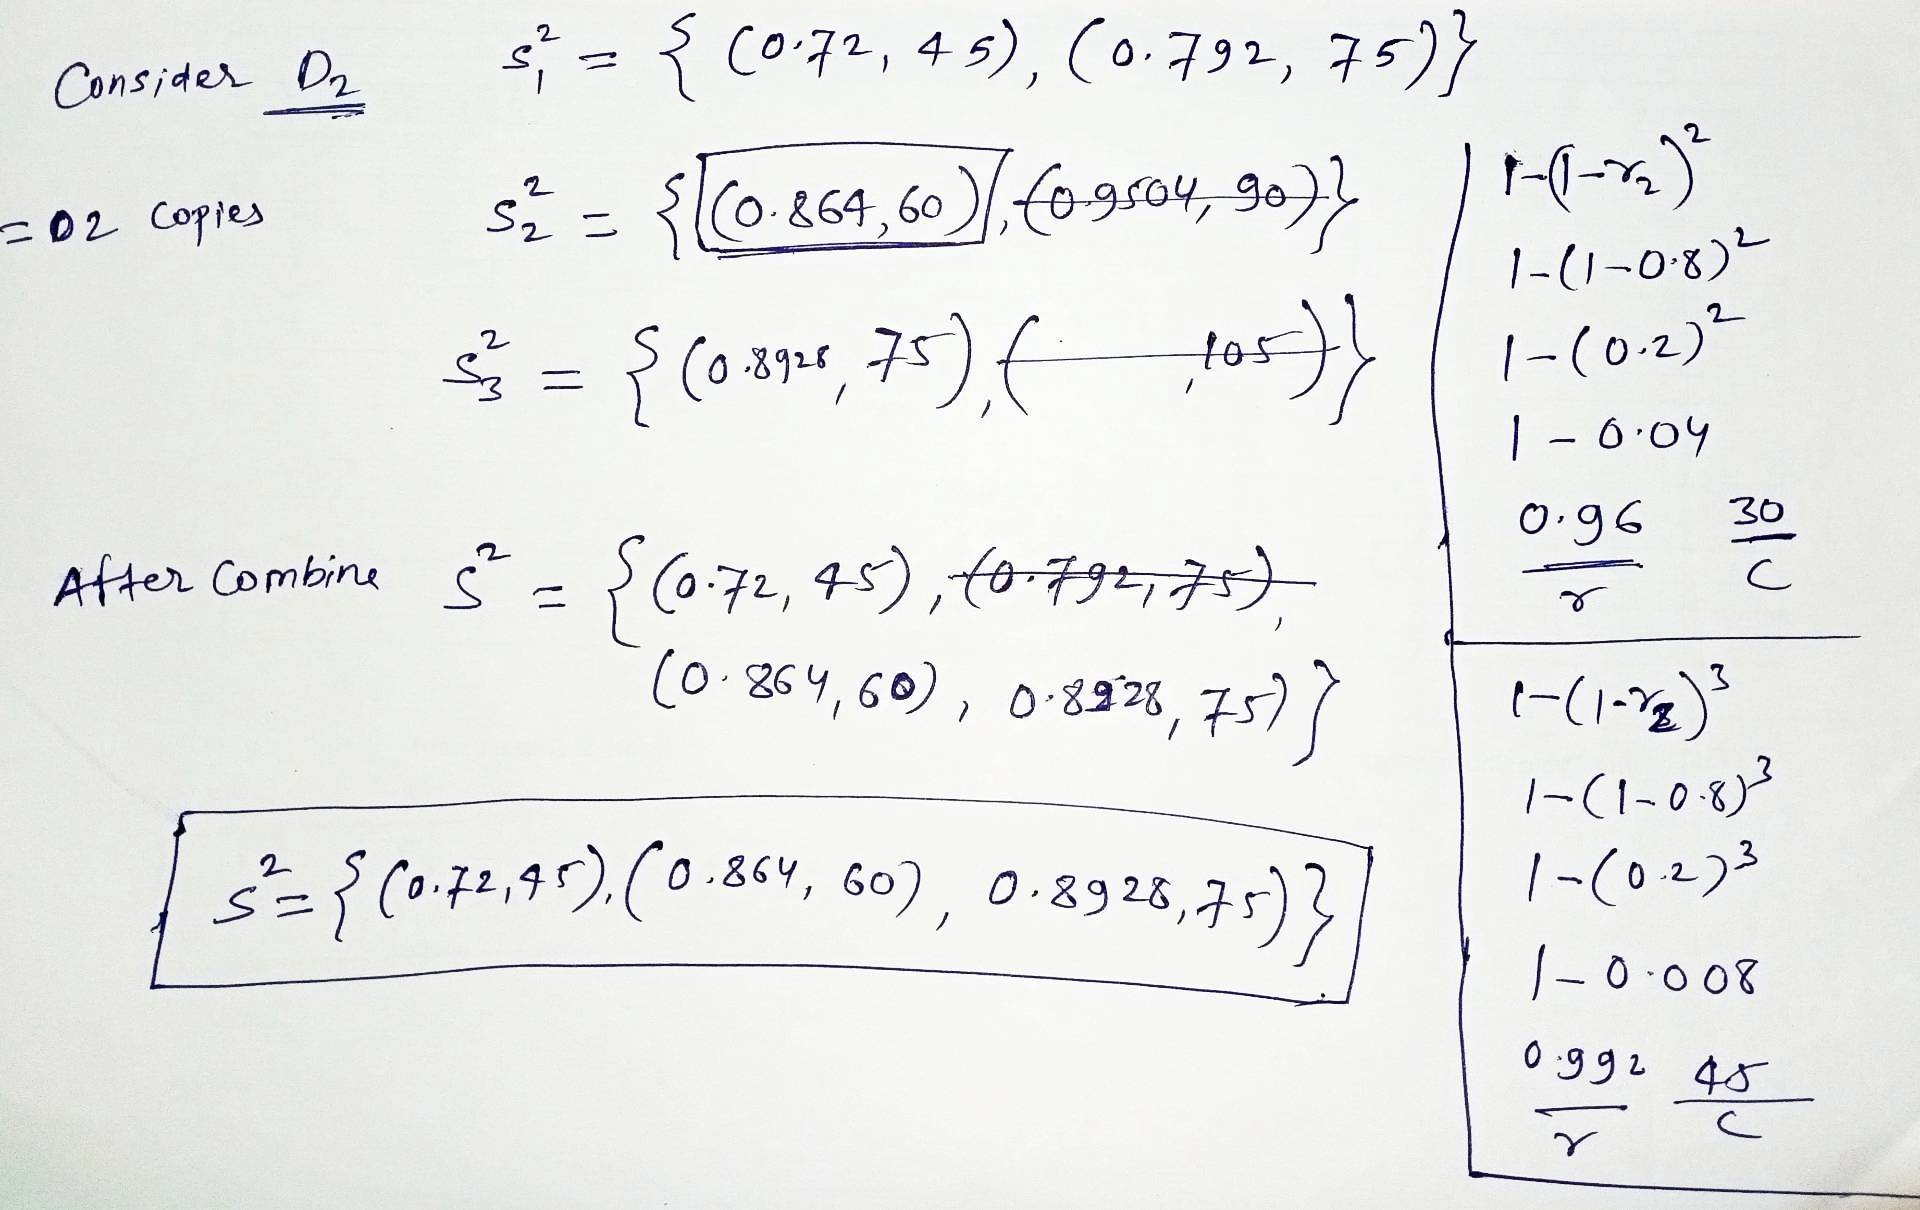 Consider D₂ S₁² = { (0.72, 45), (0.792, 75)}
= 02 Copies S₂² = { (0.864, 60), (0.9504, 90)}
S₃² = { (0.8928, 75), ( , 105)}
After Combine S² = { (0.72, 45), (0.792, 75),
(0.864, 60), 0.8928, 75) }
S² = { (0.72, 45), (0.864, 60), 0.8928, 75)}
1-(1-r₂)²
1-(1-0.8)²
1-(0.2)²
1-0.04
0.96 30
r C
1-(1-r₂)³
1-(1-0.8)³
1-(0.2)³
1-0.008
0.992 45
r C